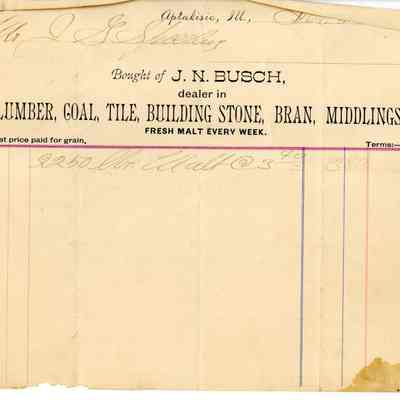 Aptakisic, Ill.,
Bought of J. N. BUSCH,
dealer in
LUMBER, COAL, TILE, BUILDING STONE, BRAN, MIDDLINGS
FRESH MALT EVERY WEEK.
st price paid for grain, Terms:—
2250 Malt @ 3